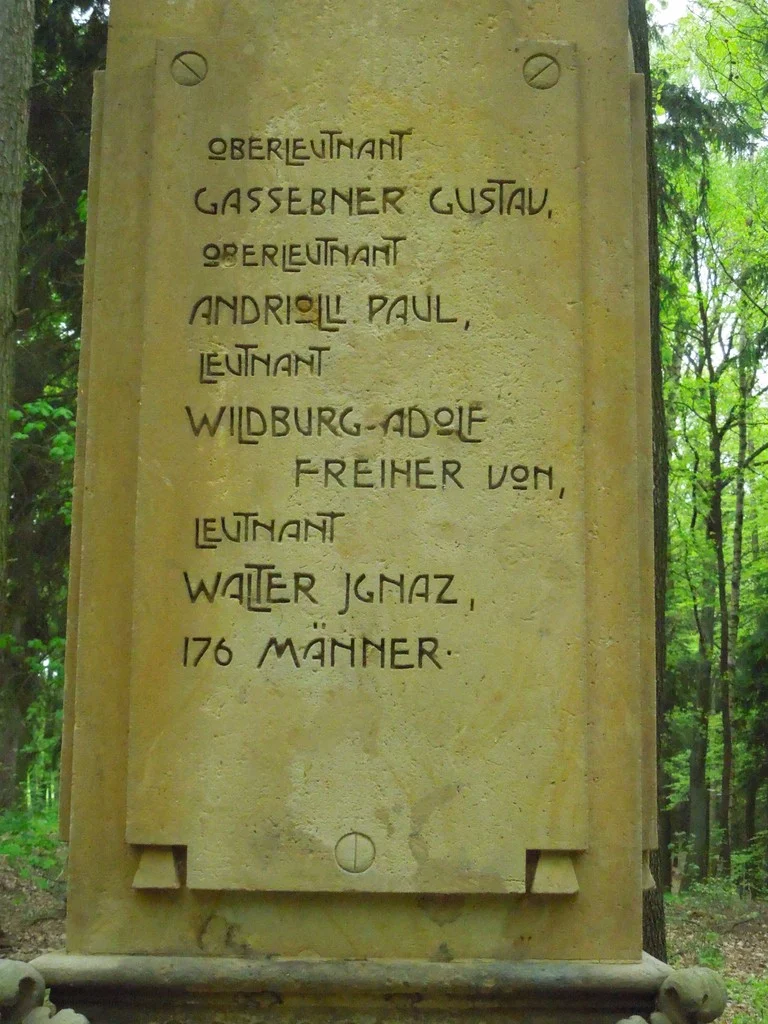 OBERLEUTNANT
GASSEBNER GUSTAV,
OBERLEUTNANT
ANDRIOLLI PAUL,
LEUTNANT
WILDBURG-ADOLF
FREIHER VON,
LEUTNANT
WALTER JGNAZ,
176 MÄNNER.